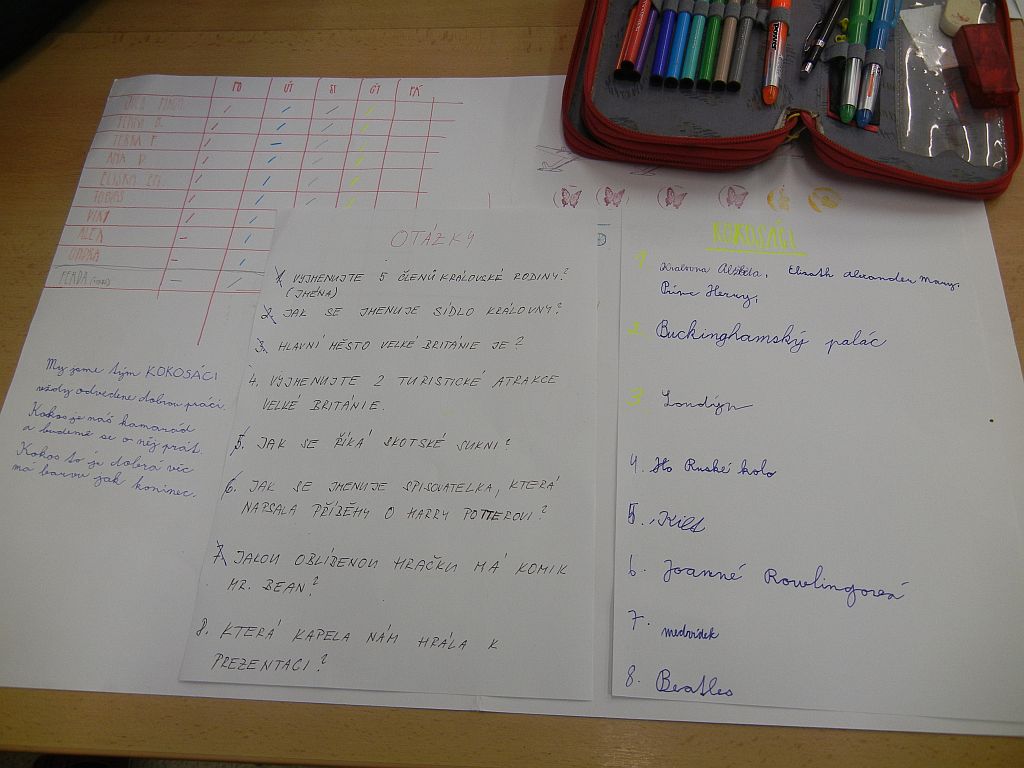 PO ÚT ST ČT PÁ
TEREZA F.
ANA D.
ELIŠKA
TOBIÁŠ
VIKI
ALEX
ONDRA
My jsme tým KOKOSÁCI
vždy odvedeme dobrou práci.
Kokos je náš kamarád
a budeme se o něj prát.
Kokos to je dobrá věc
má barvu jak koninec.
OTÁZKY
1. VYJMENUJTE 5 ČLENŮ KRÁLOVSKÉ RODINY?
(JMÉNA)
2. JAK SE JMENUJE SÍDLO KRÁLOVNY?
3. HLAVNÍ MĚSTO VELKÉ BRITÁNIE JE?
4. VYJMENUJTE 2 TURISTICKÉ ATRAKCE
VELKÉ BRITÁNIE.
5. JAK SE ŘÍKÁ SKOTSKÉ SUKNI?
6. JAK SE JMENUJE SPISOVATELKA, KTERÁ
NAPSALA PŘÍBĚHY O HARRY POTTEROVI?
7. JAKOU OBLÍBENOU HRAČKU MÁ KOMIK
MR. BEAN?
8. KTERÁ KAPELA NÁM HRÁLA K
PREZENTACI?
KOKOSÁCI
1. Královna Alžběta, Elizath Alexander Mary,
Princ Herry,
2. Buckinghamský palác
3. Londýn
4. Ruské kolo
5. Kilt
6. Joanne Rowlingová
7. medvídek
8. Beatles